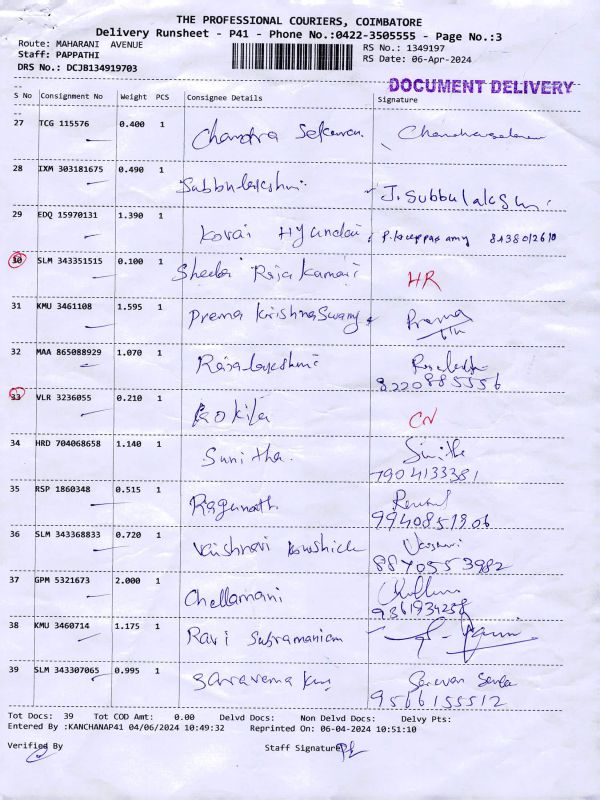 THE PROFESSIONAL COURIERS, COIMBATORE
Delivery Runsheet - P41 - Phone No.:0422-3505555 - Page No.:3
Route: MAHARANI AVENUE RS No.: 1349197
Staff: PAPPATHI RS Date: 06-Apr-2024
DRS No.: DCJB134919703
DOCUMENT DELIVERY
S No Consignment No Weight PCS Consignee Details Signature
27 TCG 115576 0.400 1 Chandra Sekaran.
28 IXM 303181675 0.490 1 Subbulakshmi J. Subbulakshmi
29 EDQ 15970131 1.390 1 Kovai Hyundai
30 SLM 343351515 0.100 1 Sheela Rajakumari HR
31 KMU 3461108 1.595 1 Prema Krishnaswamy Prema
32 MAA 865088929 1.070 1 Rajalakshmi
8220885556
33 VLR 3236055 0.210 1 Kokila CN
34 HRD 704068658 1.140 1 Sunitha.
7904133381
35 RSP 1860348 0.515 1 Ragunath.
9940851906
36 SLM 343368833 0.720 1 Vaishnavi Koushick
8870553982
37 GPM 5321673 2.000 1 Chellamani
38 KMU 3460714 1.175 1 Ravi Subramaniam
39 SLM 343307065 0.995 1
9566155512
Tot Docs: 39 Tot COD Amt: 0.00 Delvd Docs: Non Delvd Docs: Delvy Pts:
Entered By :KANCHANAP41 04/06/2024 10:49:32 Reprinted On: 06-04-2024 10:51:10
Verified By Staff Signature